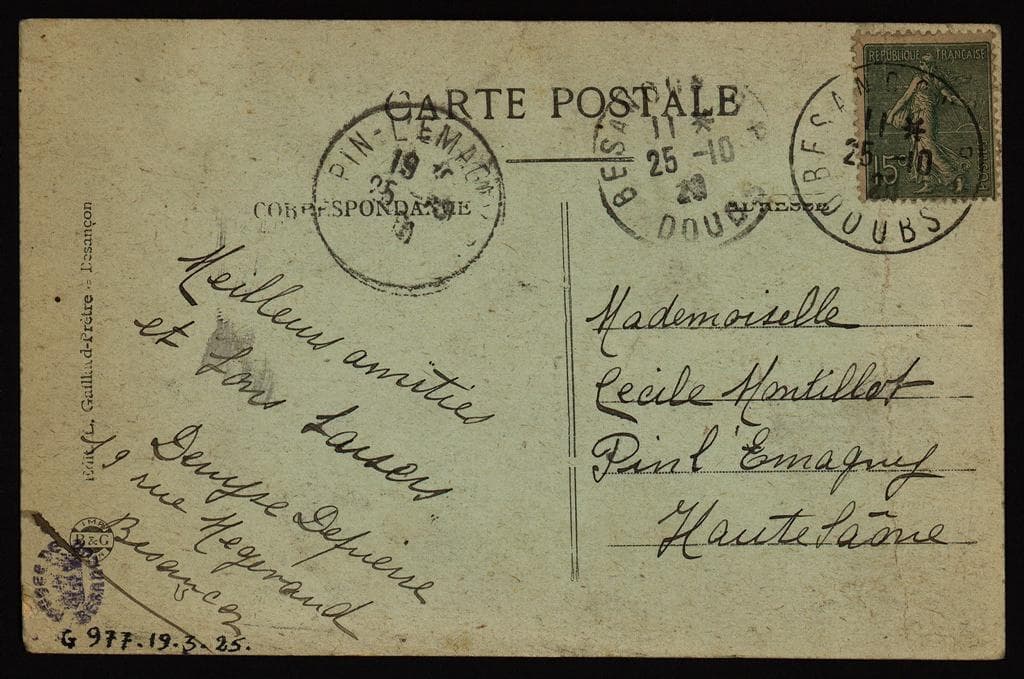 CARTE POSTALE
RÉPUBLIQUE FRANÇAISE
15
BESANÇON
11 *
25 -10
DOUBS
BESANÇON
11 *
25 -10
20
DOUBS
PIN-L'EMAGNY
19 *
25
CORRESPONDANCE
ADRESSE
Meilleurs amitiés
et bons baisers
Denyse
19 rue Megevand
Besançon
Mademoiselle
Cécile Montillot
Pin l'Emagny
Haute Saône
Gaillard-Prêtre - Besançon
IMP
B&G
G 977.19.3.25.